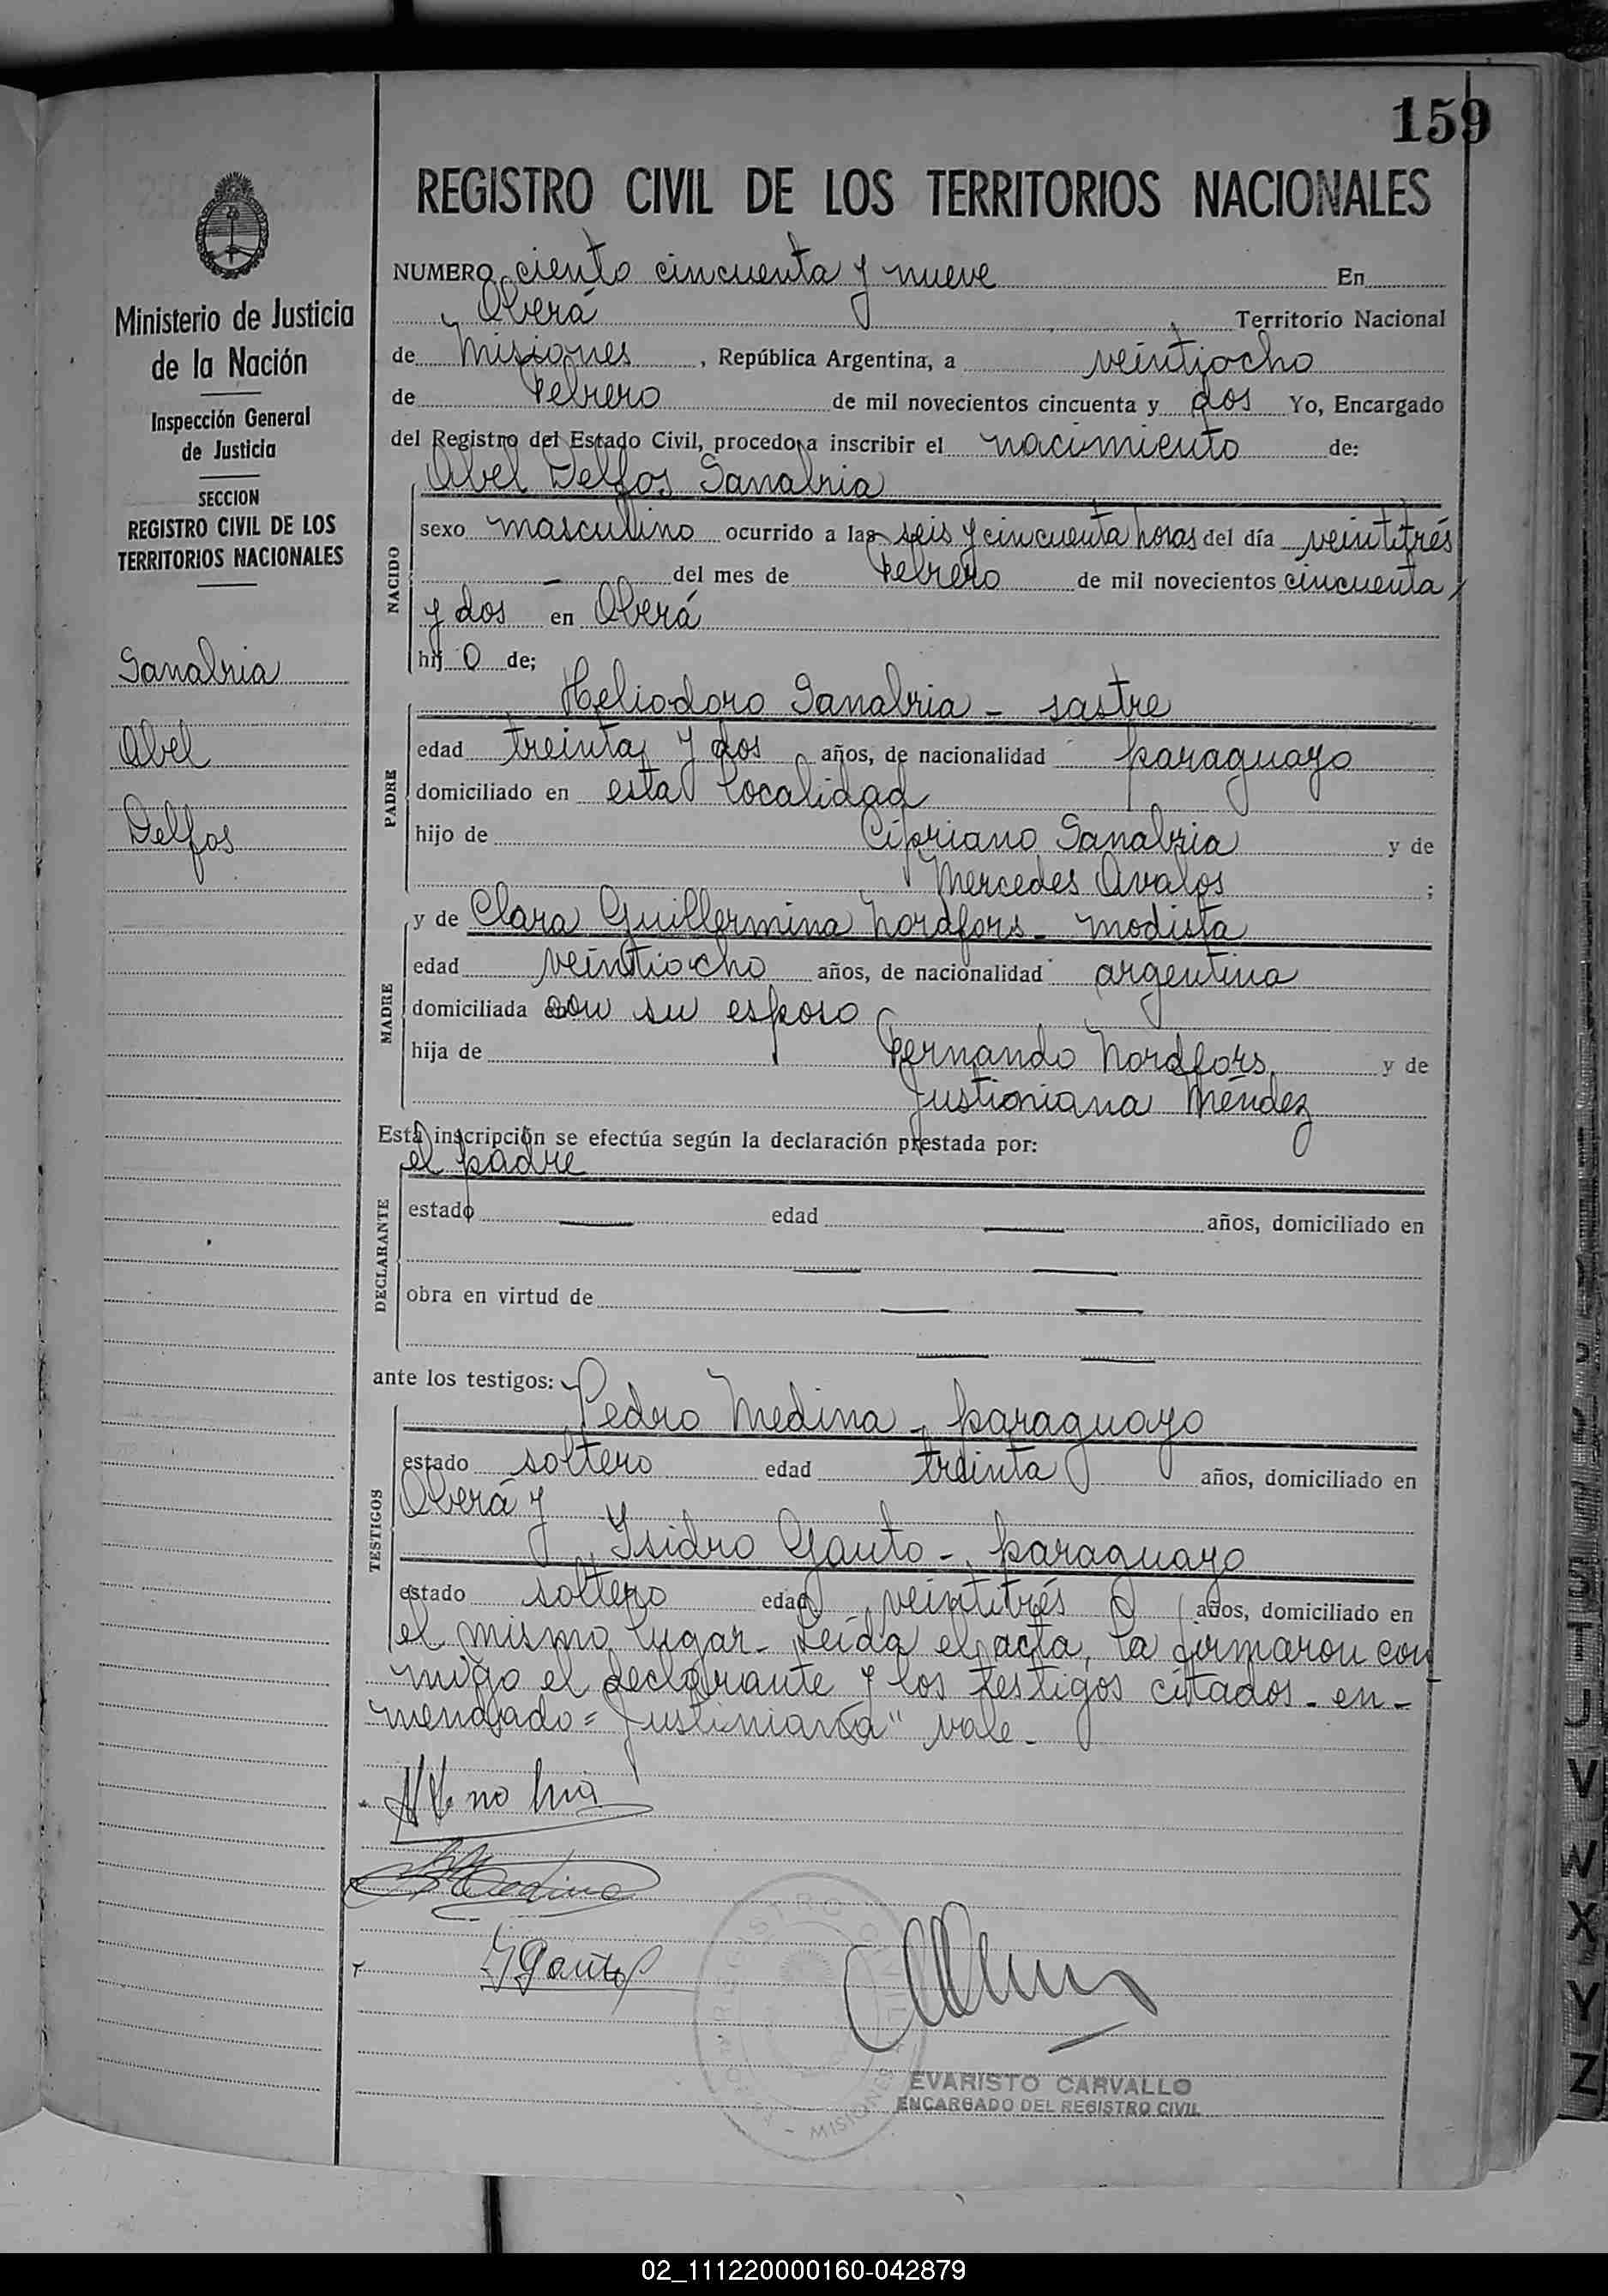 159
REGISTRO CIVIL DE LOS TERRITORIOS NACIONALES
Ministerio de Justicia
de la Nación
Inspección General
de Justicia
SECCION
REGISTRO CIVIL DE LOS
TERRITORIOS NACIONALES
Sanabria
Abel
Delfos
NUMERO ciento cincuenta y nueve En
Oberá Territorio Nacional
de Misiones, República Argentina, a veintiocho
de Febrero de mil novecientos cincuenta y dos Yo, Encargado
del Registro del Estado Civil, procedo a inscribir el nacimiento de:
Abel Delfos Sanabria
NACIDO
sexo masculino ocurrido a las seis y cincuenta horas del día veintitrés
— del mes de Febrero de mil novecientos cincuenta
y dos en Oberá
hij o de;
Heliodoro Sanabria - sastre
PADRE
edad treinta y dos años, de nacionalidad paraguayo
domiciliado en esta localidad
hijo de Cipriano Sanabria y de
Mercedes Avalos ;
y de Clara Guillermina Nordfors - modista
MADRE
edad veintiocho años, de nacionalidad argentina
domiciliada con su esposo
hija de Fernando Nordfors y de
Justiniana Méndez
Esta inscripción se efectúa según la declaración prestada por:
el padre
DECLARANTE
estado — edad — años, domiciliado en
— —
obra en virtud de — —
— —
ante los testigos:
Pedro Medina - paraguayo
TESTIGOS
estado soltero edad treinta años, domiciliado en
Oberá y
Isidro Gauto - paraguayo
estado soltero edad veintitrés años, domiciliado en
el mismo lugar - Leída el acta, la firmaron con
migo el declarante y los testigos citados - en-
mendado = Justiniana" vale -
Medina
Y Gauto
REGISTRO CIVIL
- MISIONES -
EVARISTO CARVALLO
ENCARGADO DEL REGISTRO CIVIL
T
U
V
W
X
Y
Z
02_111220000160-042879